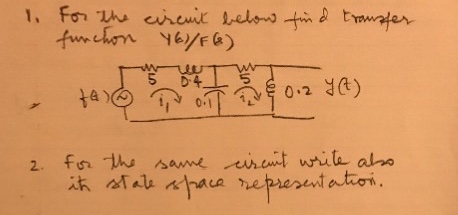 1. For the circuit below find transfer
function Y(s)/F(s)
5 0.4 5
f(t) i1 0.1 i2 0.2 y(t)
2. For the same circuit write also
its state space representation.